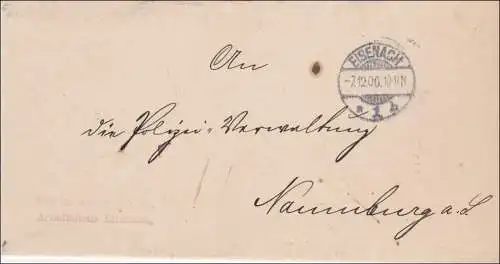 An
EISENACH
-7.12.00.10-11N.
* 1 h
die Polizei-Verwaltung
Naumburg a. S.